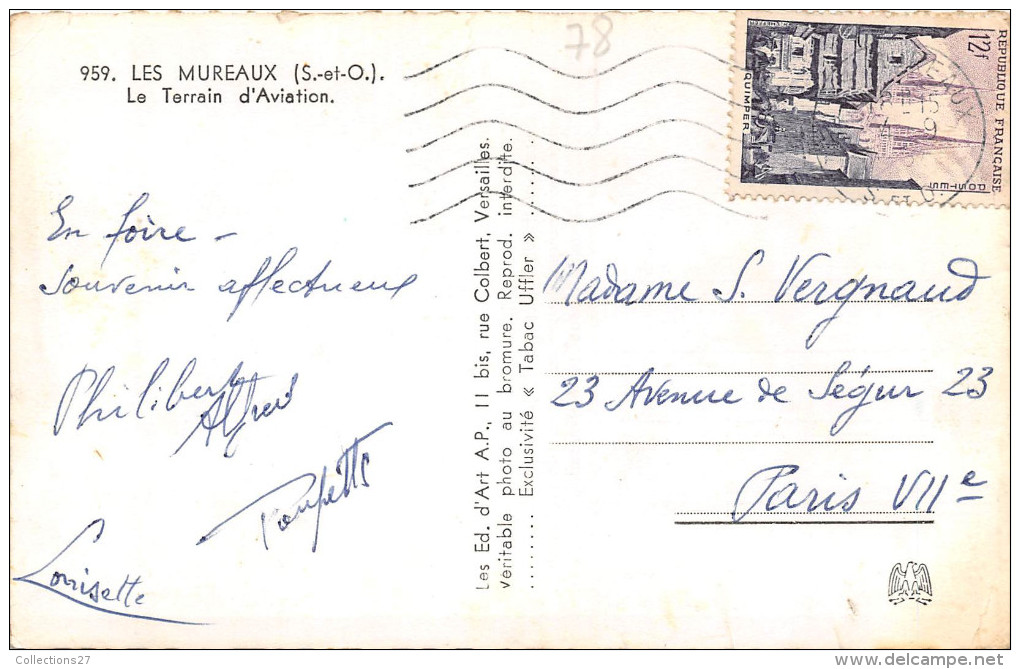 78
959. LES MUREAUX (S.-et-O.).
Le Terrain d'Aviation.
En foire -
Souvenir affectueux
Philibert
Alfred
Poupette
Louisette
Les Ed. d'Art A.P., 11 bis, rue Colbert, Versailles.
Veritable photo au bromure. Reprod. interdite.
Exclusivité « Tabac Uffler »
12f
REPUBLIQUE FRANÇAISE
POSTES
QUIMPER
Madame S. Vergnaud
23 Avenue de Ségur 23
Paris VIIe
Collections27
delcampe.net